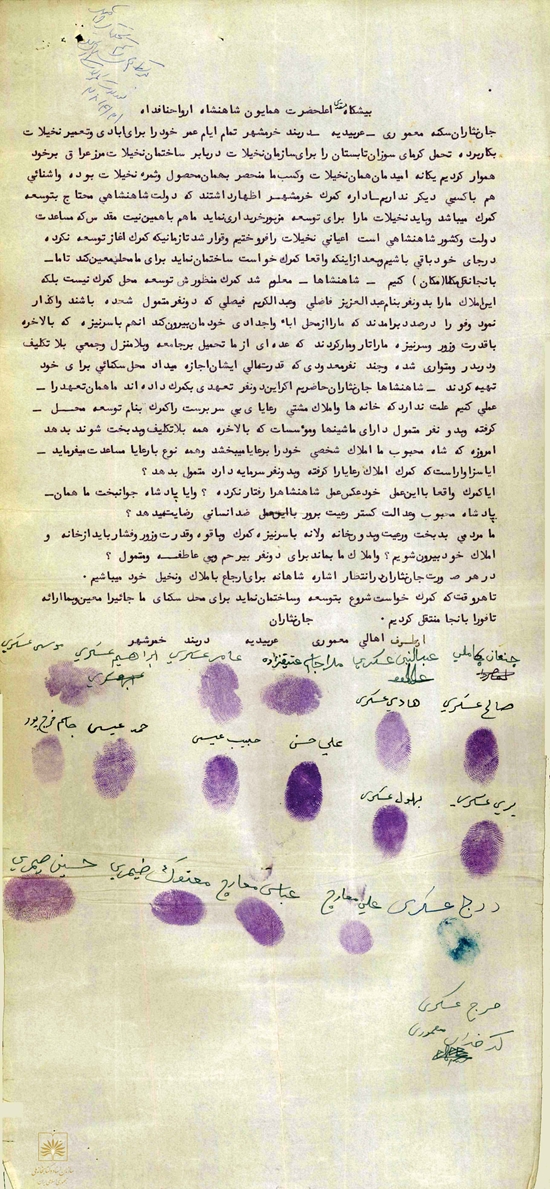 بیشگاه مقدس اعلحضرت همایون شاهنشاه ارواحنافداه
جان‌نثاران سکنه معموری ــ عربیدیه ــ دربند خرمشهر تمام ایام عمر خود را برای ابادی وتعمیر نخیلات
بکاربرده تحمل گرمای سوزان تابستان را برای سازمان نخیلات دربابر ساختمان نخیلات مرز عراق برخود
هموار کردیم یگانه امیدمان همان نخیلات وکسب ما منحصر بهمان محصول وثمره نخیلات بوده واشنائی
هم باکسبی دیگر نداریم ــ اداره گمرک خرمشهر اظهار داشتند که دولت شاهنشاهی محتاج بتوسعه
گمرک میباشد وباید نخیلات مارا برای توسعه مزبور خریداری نماید ماهم باهمین نیت مقدس که مساعدت
دولت وکشور شاهنشاهی است اعیانی نخیلات را فروختیم وقرار شد تازمانیکه گمرک اغاز توسعه نکرده
درجای خود باقی باشیم وبعد ازاینکه واقعا گمرک خواست ساختمان نماید برای ما محل معین کند تاما ــ
بانجا نقل مکان) کنیم ــ شاهنشاها ــ معلوم شد گمرک منظورش توسعه محل گمرک نیست بلکه
این املاک مارا بدو نفر بنام عبدالعزیز فاضلی وعبدالکریم فیصلی که دونفر متمول شحده باشند واگذار
نمود وفو را درصدد برامدند که مارا از محل اباء واجدادی خودمان بیرون کند انهم باسرنیزه که بالاخره
باقدرت وزور وسرنیزه مارا تارومار کردند که عده‌ای از ما تحمیل برجامعه وبلامنزل وجمعی بلا تکلیف
ودربدر ومتواری شده وچند نفر معدودی که قدرت مالی ایشان اجازه میداد محل سکنائی برای خود
تهیه کردند ــ شاهنشاها جان‌نثاران حاضریم اگر این دو نفر تعهدی بگمرک داده‌اند ماهمان تعهد را ــ
عملی کنیم علت ندارد که خانه‌ها واملاک مشتی رعایای بی سرپرست را گمرک بنام توسعه محــل ــ
گرفته وبدو نفر متمول دارای ماشینها ومؤسسات که بالاخره همه بلا تکلیف وبدبخت شوند بدهد
امروزه که شاه محبوب ما املاک شخصی خود را برعایا میبخشد وهمه نوع بارعایا مساعدت میفرماید ــ
ایا سزاوار است که گمرک املاک رعایا را گرفته وبدو نفر سرمایه دارد متمول بدهد ؟
ایا گمرک واقعا با این عمل خود عکس عمل شاهنشاهرا رفتار نکرده ؟ وایا پادشاه جوانبخت ما همان ــ
پادشاه محبوب وعدالت گستر رعیت برور با این عمل ضد انسانی رضایت میدهد ؟
ما مردمی بدبخت ورعیت وبدون خانه ولانه با سرنیزه گمرک وباقوه وقدرت وزور وفشار باید از خانه و
املاک خود بیرون شویم ؟ واملاک ما بماند برای دونفر بیرحم وبی عاطفــه ومتمول ؟
در هر صورت جان‌نثاران را انتظار اشاره شاهانه برای ارجاع باملاک ونخیل خود میباشیم ·
تاهروقت که گمرک خواست شروع بتوسعه وساختمان نماید برای محل سکنای ما جائیرا معین وبما ارائه
تافورا بانجا منتقل گردیم · جان‌نثاران
ازطرف اهالی معموری عربیدیه دربند خرمشهر
چنعان کاملی عبدالنبی عسکری ملا جاسم عتیقزاده عامر عسکری ابراهیم عسکری موسی عسکری
صالح عسکری هادی عسکری
علی حسن حبیب عیسی حمد عیسی جاسم فرج پور
بری عسکری بهلول عسکری
درج عسکری علی معارج عباس معارج معتوک رضیمری حسین رضیمری
مرج عسکری
کدخدای معموری